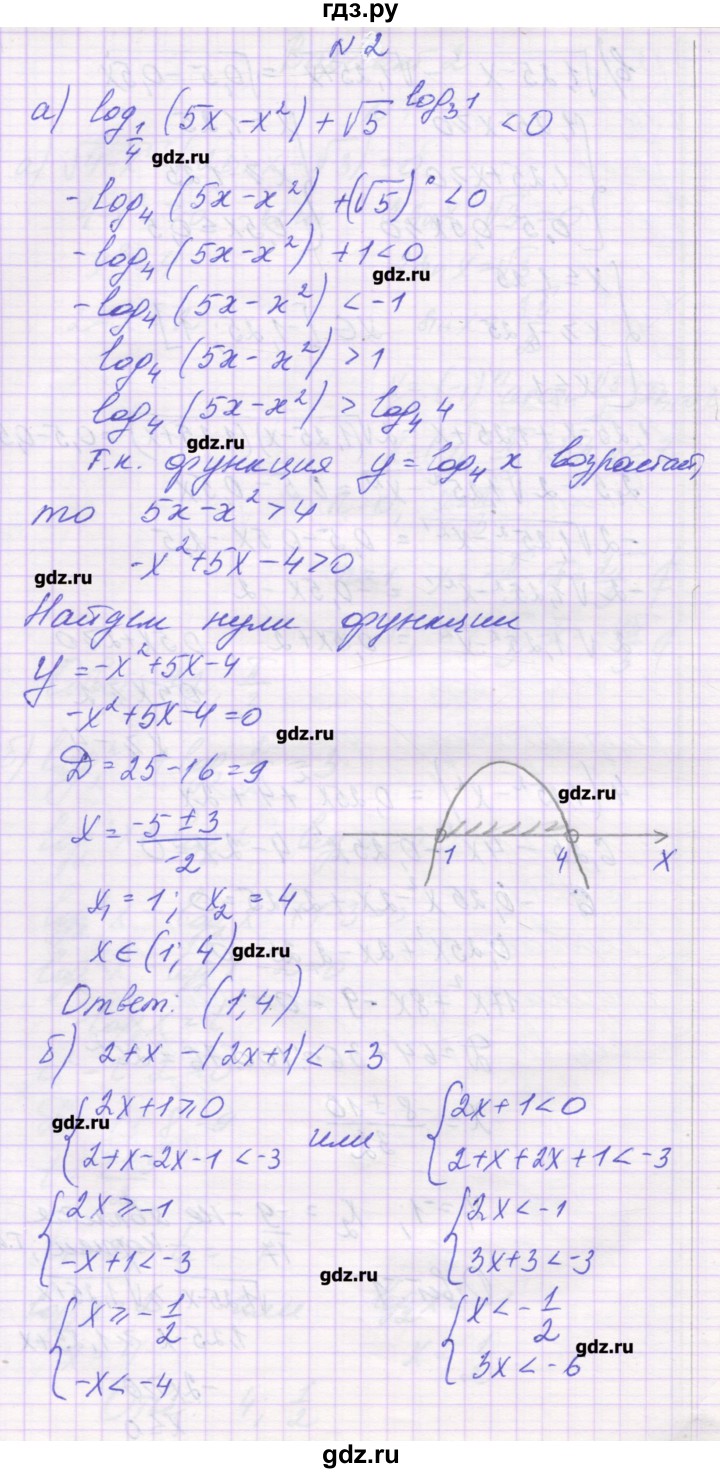 гдз.ру
N 2
а) log_{1/4} (5x - x²) + √5^{log_3 1} < 0
gdz.ru
-log_4 (5x - x²) + (√5)^0 < 0
-log_4 (5x - x²) + 1 < 0
gdz.ru
-log_4 (5x - x²) < -1
log_4 (5x - x²) > 1
log_4 (5x - x²) > log_4 4
gdz.ru
т.к. функция y = log_4 x возрастает,
то 5x - x² > 4
-x² + 5x - 4 > 0
gdz.ru
Найдем нули функции
y = -x² + 5x - 4
-x² + 5x - 4 = 0
gdz.ru
D = 25 - 16 = 9
gdz.ru
x = (-5 ± 3)/(-2)
1 4 x
x_1 = 1; x_2 = 4
x ∈ (1; 4)
gdz.ru
Ответ: (1; 4)
б) 2 + x - |2x + 1| < -3
{ 2x + 1 ≥ 0 или { 2x + 1 < 0
gdz.ru
2 + x - 2x - 1 < -3 2 + x + 2x + 1 < -3
{ 2x ≥ -1 { 2x < -1
-x + 1 < -3 3x + 3 < -3
gdz.ru
{ x ≥ -1/2 { x < -1/2
gdz.ru
-x < -4 3x < -6
gdz.ru